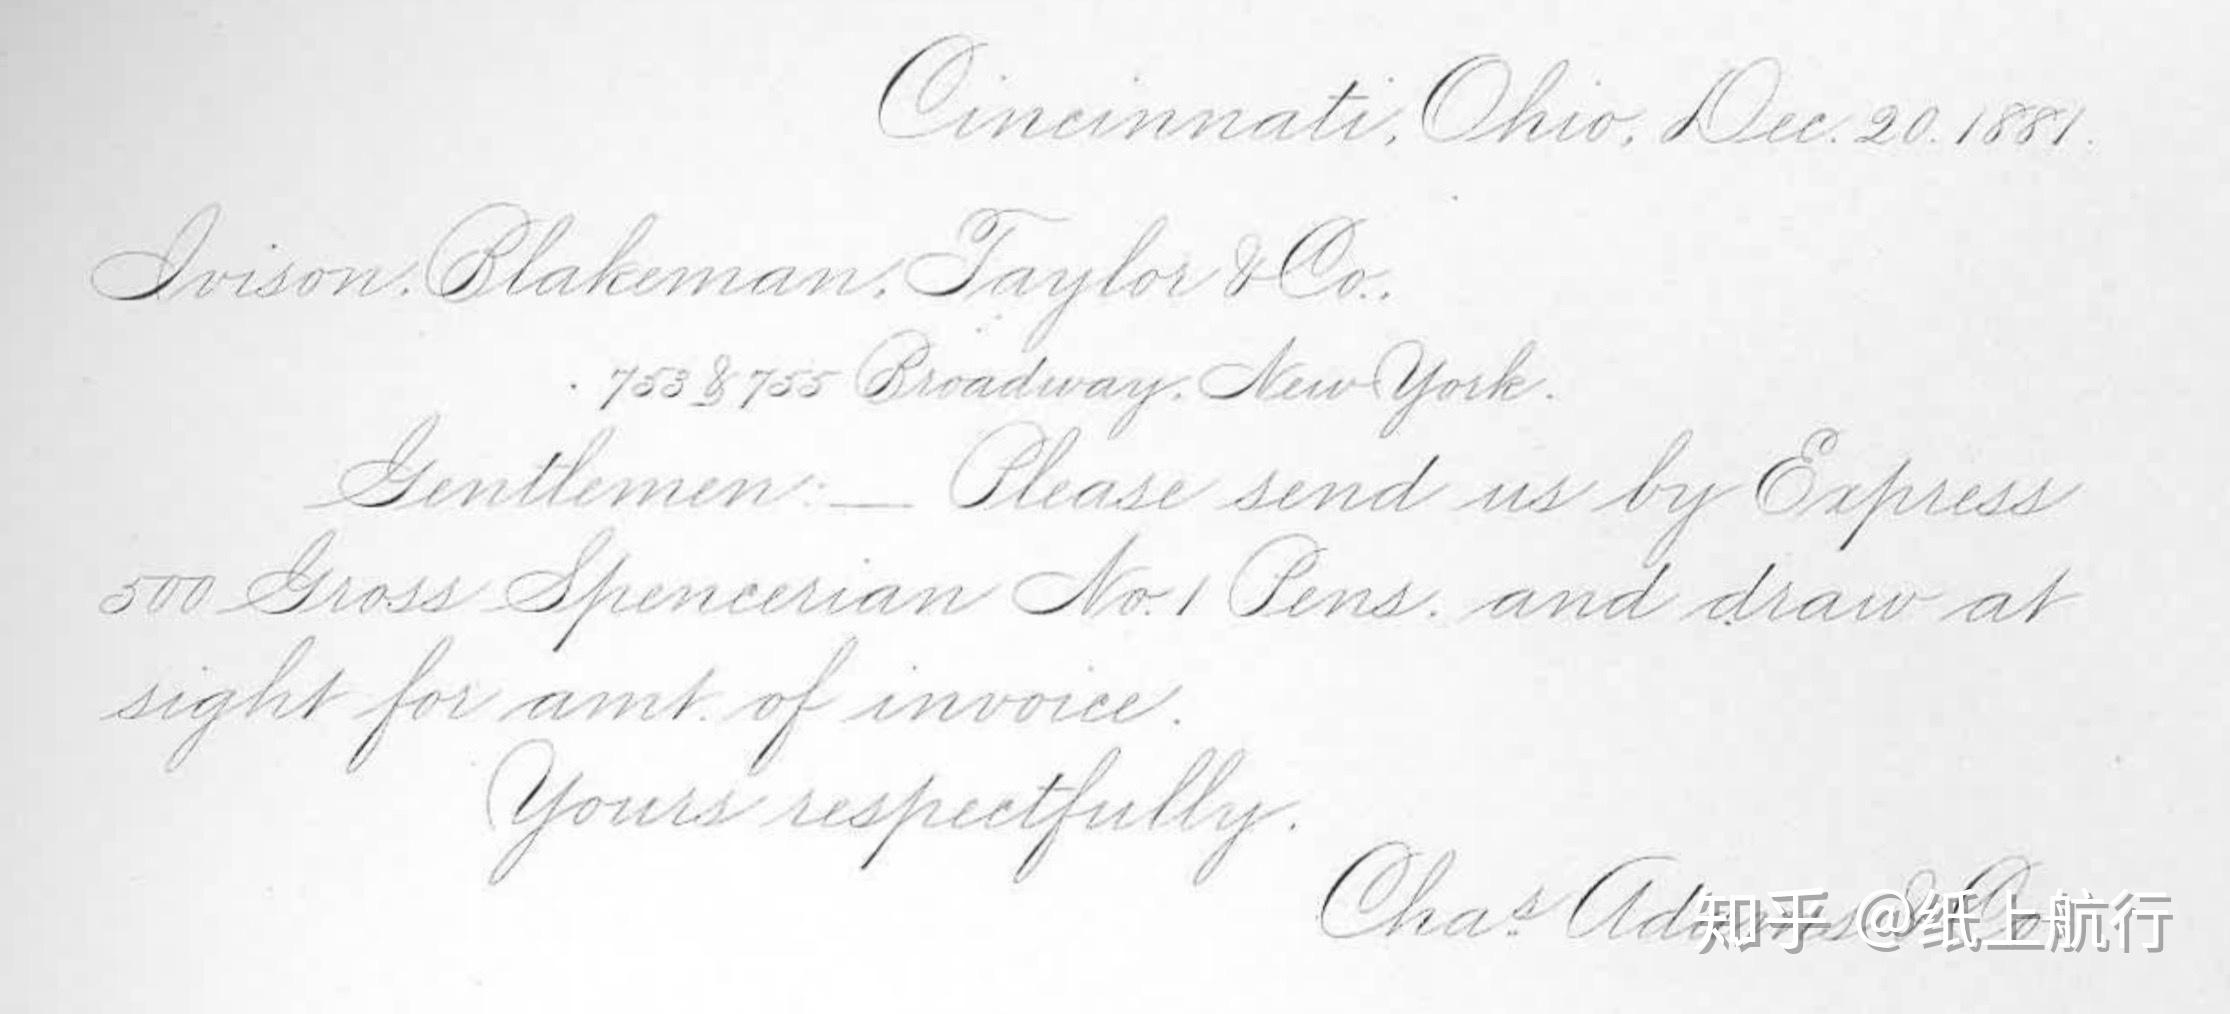 Cincinnati, Ohio, Dec. 20. 1881.
Ivison, Blakeman, Taylor & Co.,
753 & 755 Broadway, New York.
Gentlemen:— Please send us by Express
500 Gross Spencerian No. 1 Pens, and draw at
sight for amt. of invoice.
Yours respectfully,
Chas. Adams & Co.
知乎 @纸上航行